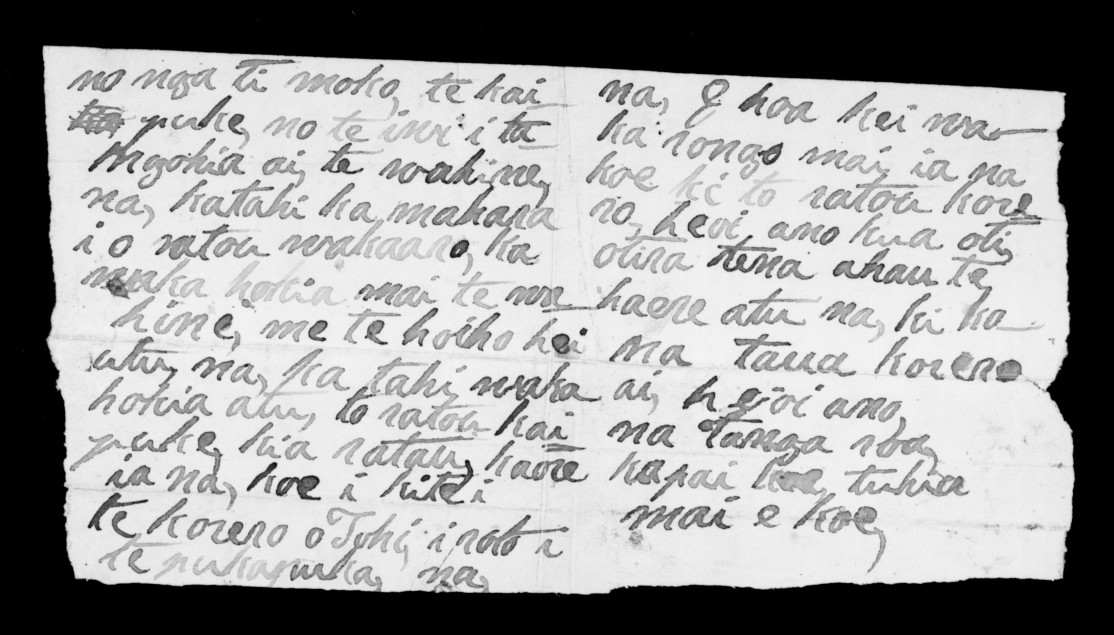 no nga ti moko, te kai
puke, no te iwi i ta
ngohia ai, te wahine,
na, katahi ka mahara
i o ratou wakaaro, ka
wuka hokia mai te wa
hine, me te hoiho hei
utu, na, ka tahi, waka
hokia atu, to ratou kai
puke, kia ratau, kaore
ia na, koe i kite i
te korero o Tohi, i roto i
te pukapuka, na,
na, E hoa kei wa
ka rongo mai, ia na
koe ki to ratou kore
ro, heoi ano kua oti,
otira tena ahau te,
haere atu na, ki ko
na taua korero
ai, heoi ano,
na Tanga roa,
kapai koe, tuhia
mai e koe,